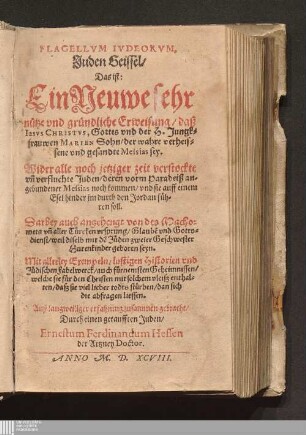 FLAGELLVM IVDEORVM,
Juden Geissel/
Das ist:
Ein Neuwe sehr
nütze vnd gründliche Erweisung / daß
IESVS CHRISTVS, Gottes vnd der H. Jungk-
frauwen MARIEN Sohn / der wahre verheis-
sene vnd gesandte Messias sey.
Wider alle noch jetziger zeit verstockte
vñ verfluchte Juden / deren vorm Paradeiß an-
gebundener Messias noch kommen / vnd sie auff einem
Esel hinder jm durch den Jordan füh-
ren soll.
Darbey auch angehengt von des Macho-
mets vñ aller Türcken vrsprung / Glaubẽ vnd Gottes-
dienst / weil dieselb mit dẽ Juden zweier Geschwester
Hurenkinder geboren seyn.
Mit allerley Exempeln / lustigen Historien vnd
Jüdischen fabelwerck / auch fürnemsten Geheimnussen /
welche sie für den Christen mit solchem vleiß enthal-
ten / daß sie viel lieber todts stürben / dan sich
die abfragen liessen.
Auß langweiliger erfahrung zusamen gebracht /
Durch einen getaufften Juden /
Ernestum Ferdinandum Hessen
der Artzney Doctor.
ANNO M. D. XCVIII.